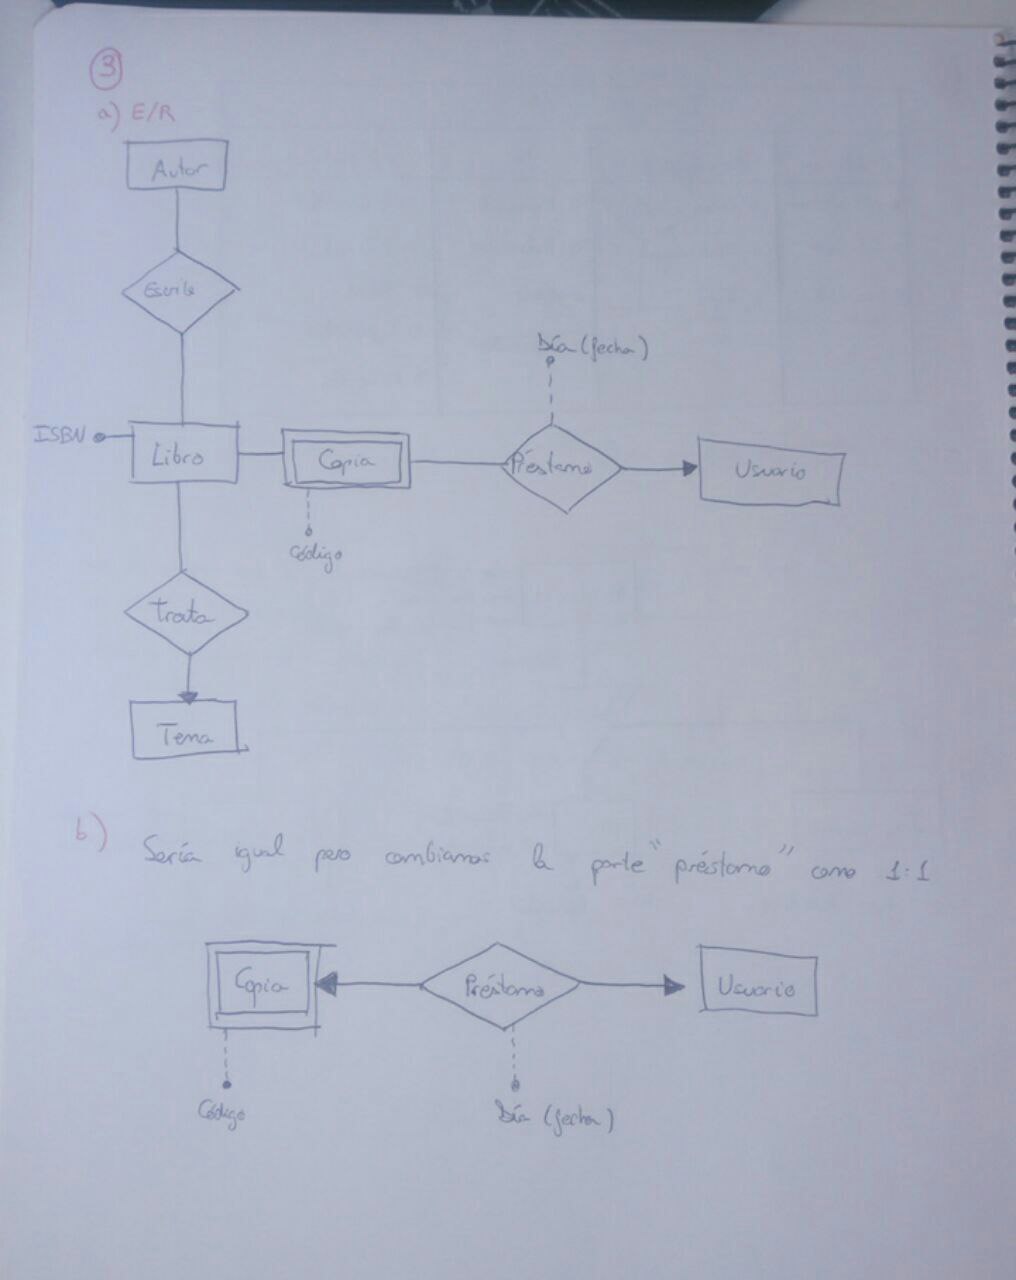 3
a) E/R
Autor
Escribe
Día (fecha)
ISBN
Libro
Copia
Préstamo
Usuario
Código
Trata
Tema
b) Sería igual pero cambiamos la parte "préstamo" como 1:1
Copia
Préstamo
Usuario
Código
Día (fecha)